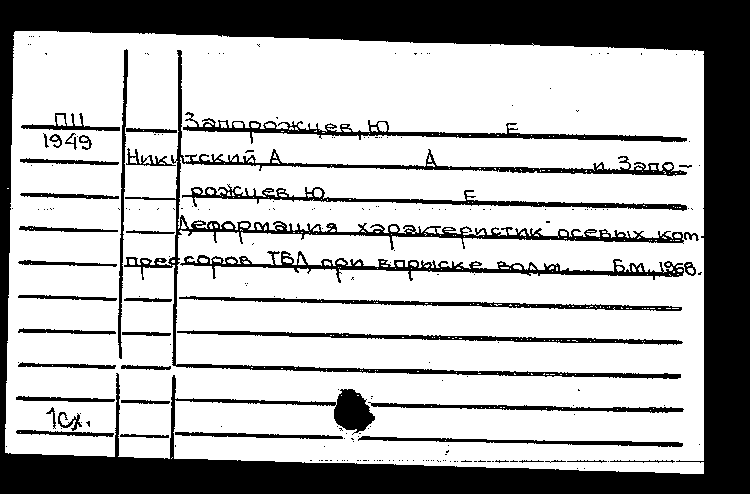 П11
1949
Запорожцев, Ю Е
Никитский, А А и Запо-
рожцев, Ю Е
Деформация характеристик осевых ком-
прессоров ТВД при впрыске воды. Б.м., 1968.
1сх.